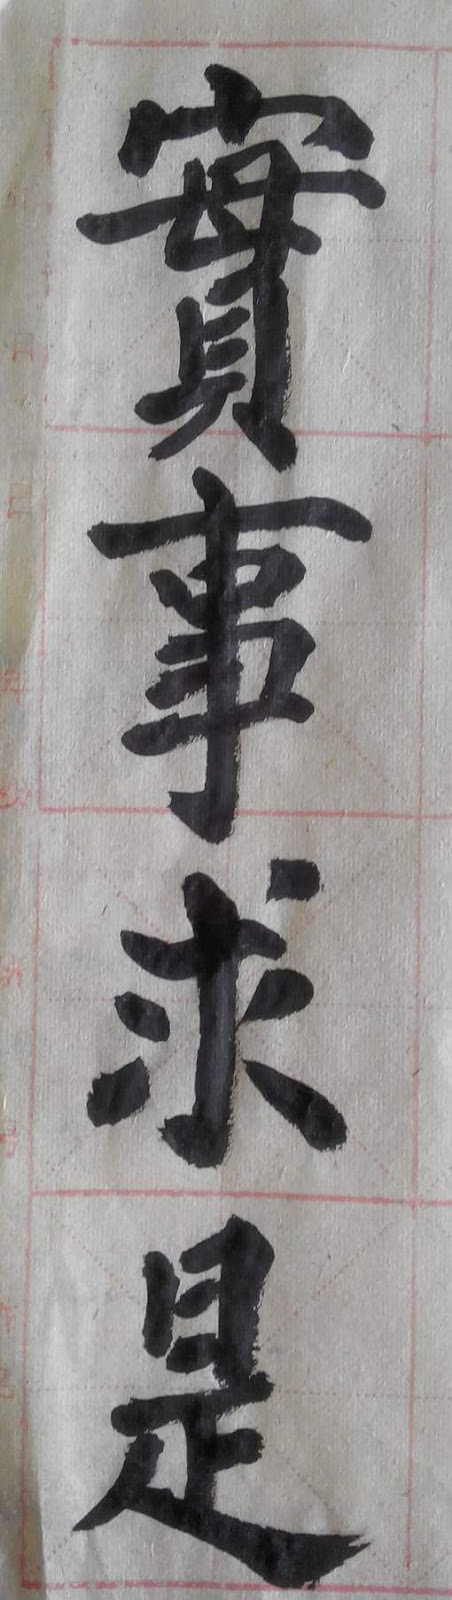 實事求是